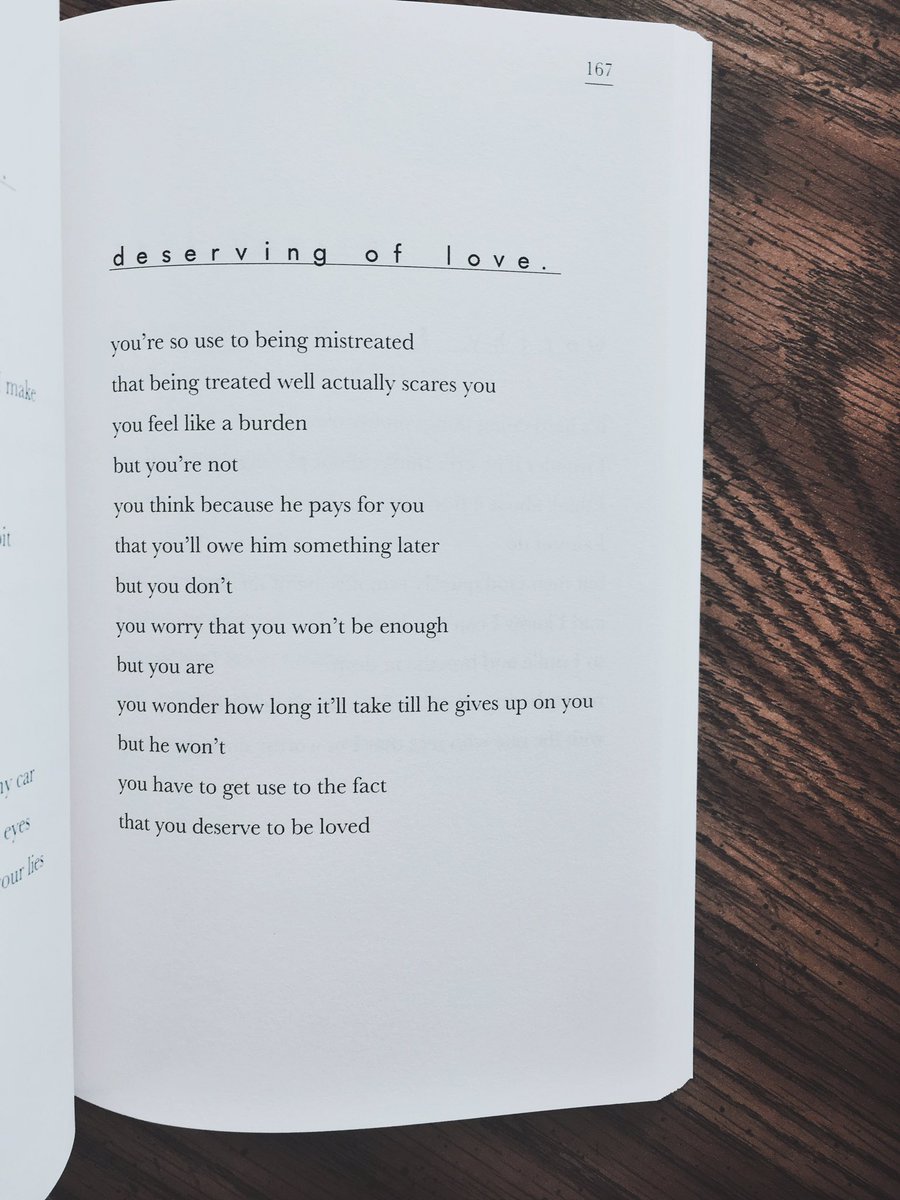 167
deserving of love.
you're so use to being mistreated
that being treated well actually scares you
you feel like a burden
but you're not
you think because he pays for you
that you'll owe him something later
but you don't
you worry that you won't be enough
but you are
you wonder how long it'll take till he gives up on you
but he won't
you have to get use to the fact
that you deserve to be loved
make
car
eyes
your lies